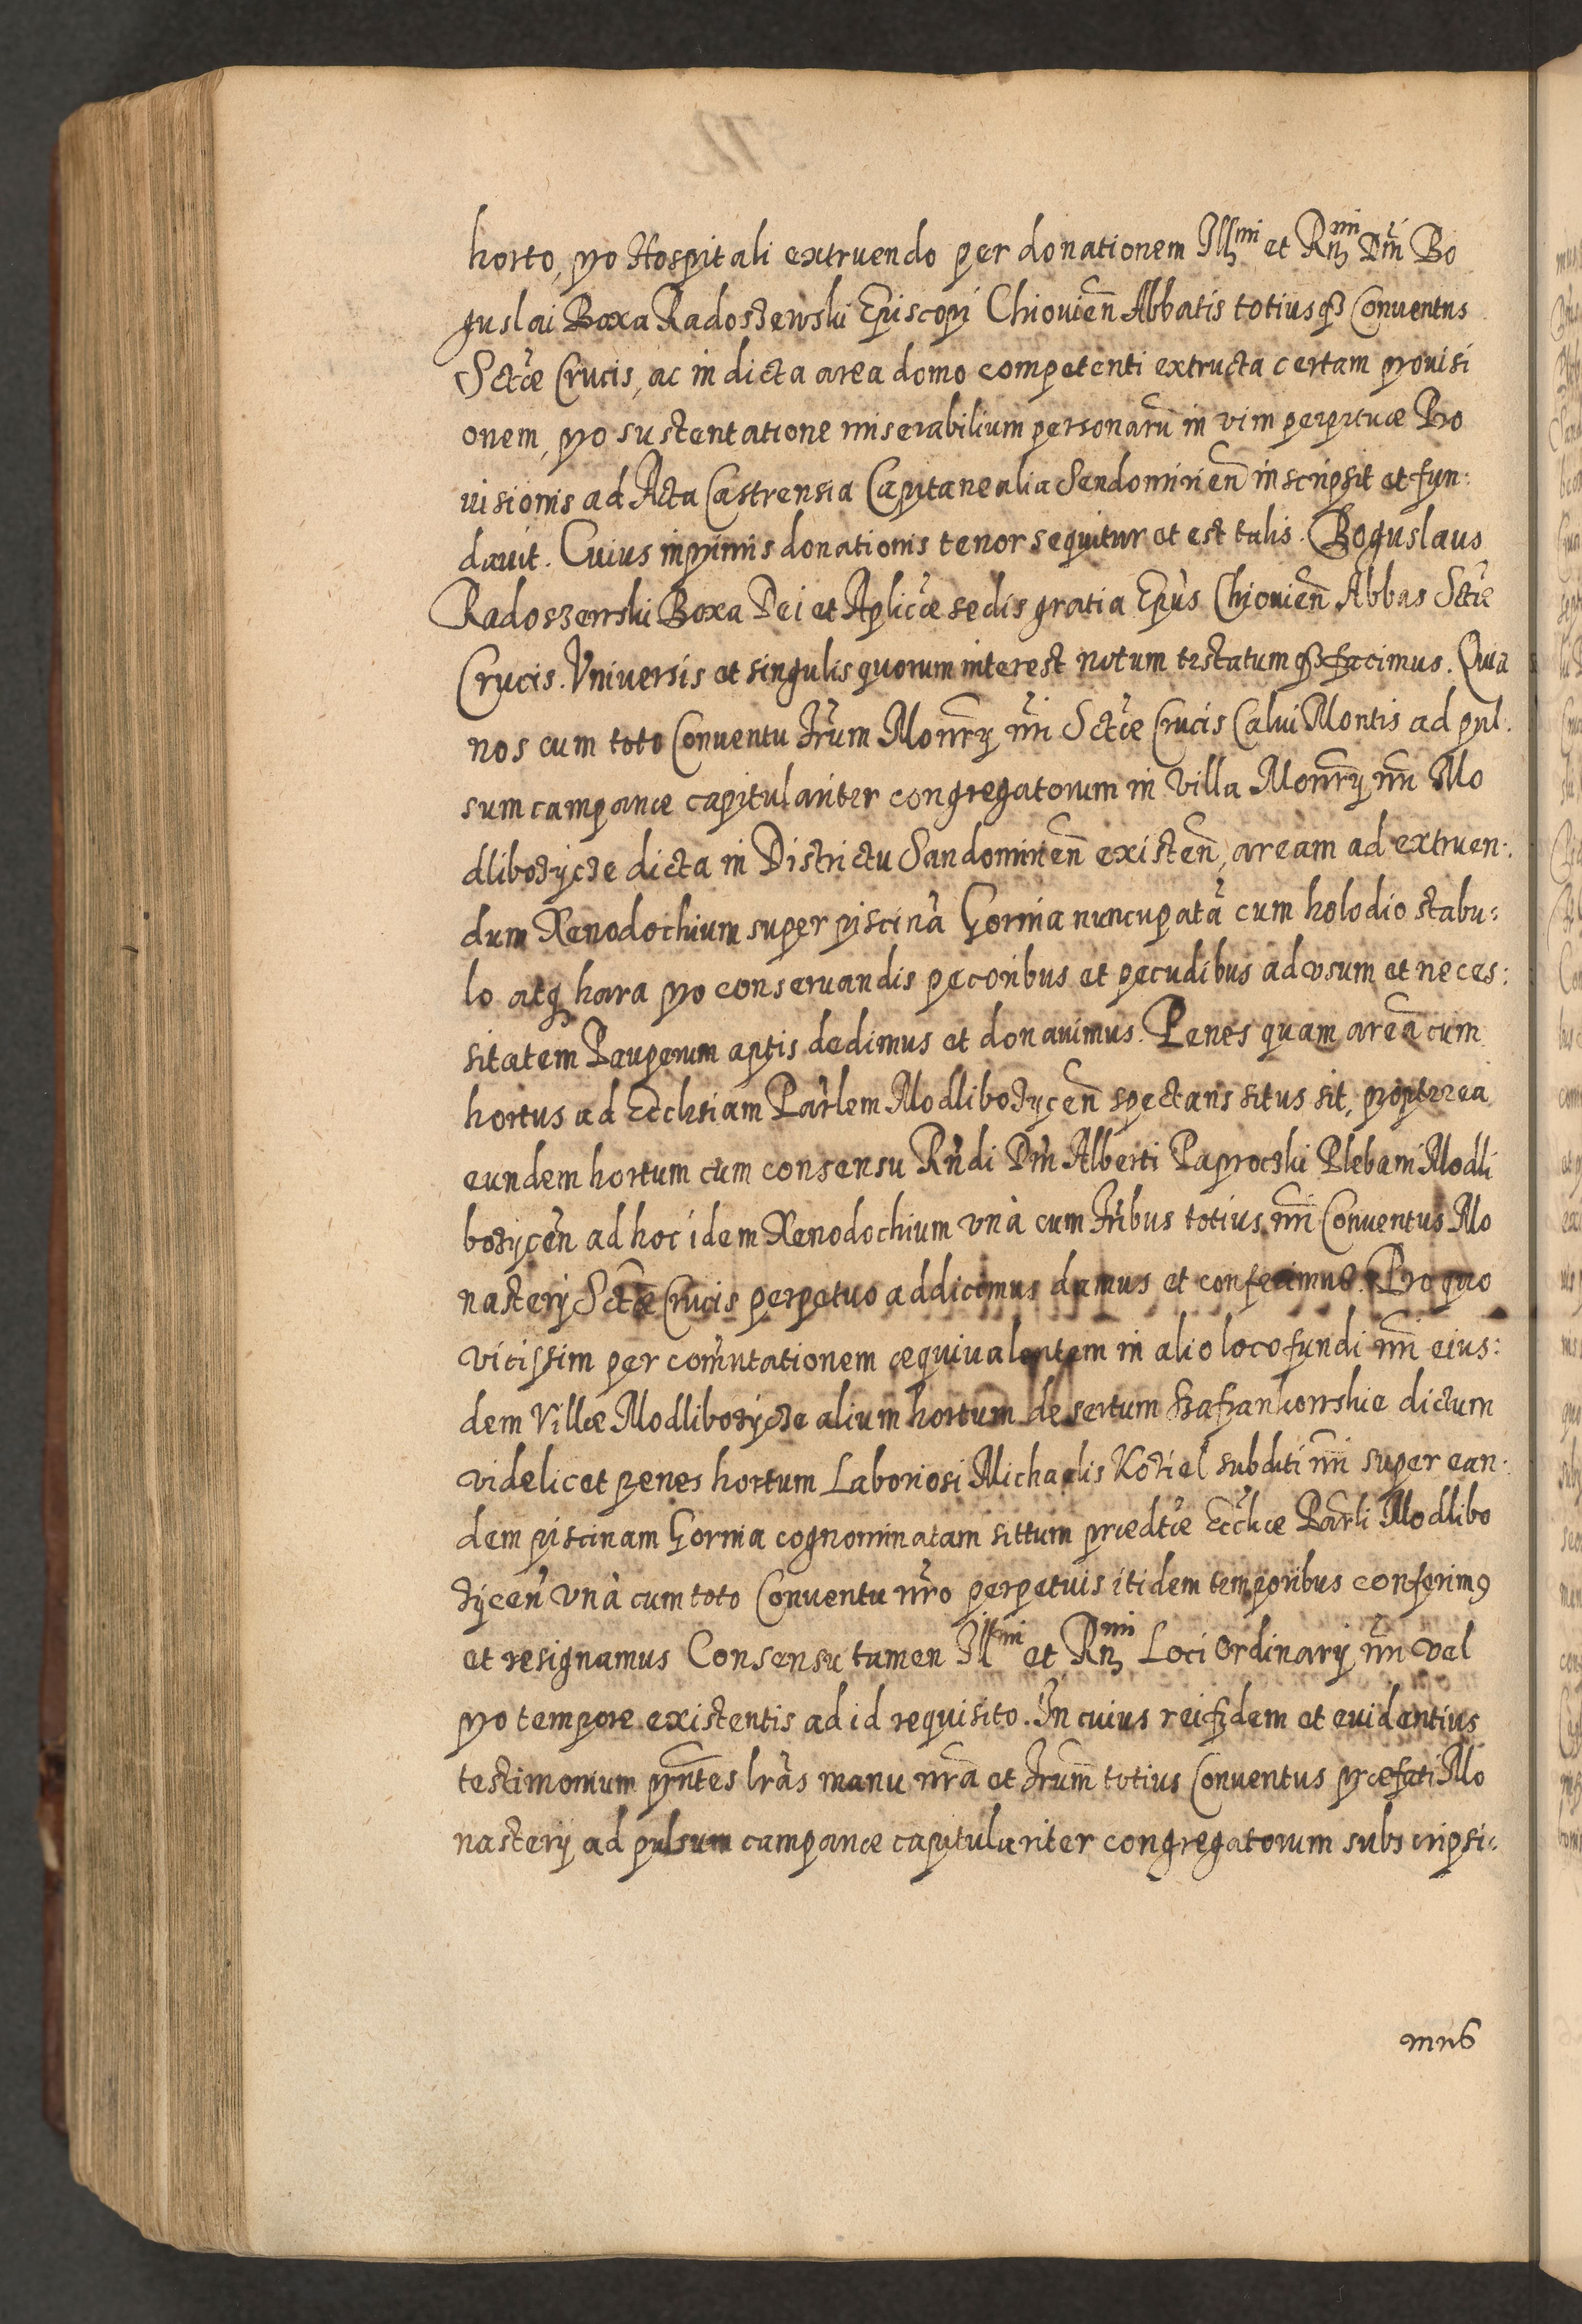 horto, pro Hospitali extruendo per donationem Illmi et Rnmi Dni Bo
guslai Boxa Radoszewski Episcopi Chiouien Abbatis totiusq Conuentus
Sctæ Crucis, ac in dicta area domo competenti extructa certam prouisi
onem, pro sustentatione miserabilium personaru in vim perpetuæ Pro
uisionis ad Acta Castrensia Capitanealia Sendomirien inscripsit et fun:
dauit. Cuius inprimis donationis tenor sequitur et est talis. Boguslaus
Radoszewski Boxa Dei et Aplicæ sedis gratia Epus Chiouien Abbas Sctæ
Crucis. Vniuersis et singulis quorum interest notum testatumq facimus. Quia
nos cum toto Conuentu frum Monrij nri Sctæ Crucis Calui Montis ad pul:
sum campanæ capitulariter congregatorum in villa Monrij nri Mo
dlibozÿcze dicta in Districtu Sandomirien existen, aream ad extruen:
dum Xenodochium super piscina Gornia nuncupata cum holodio stabu:
lo atq hara pro conseruandis pecoribus et pecudibus ad vsum et neces:
sitatem Pauperum aptis dedimus et donauimus. Penes quam area cum
hortus ad Ecclesiam Parlem Modlibozÿcen spectans situs sit, propterea
eundem hortum cum consensu Rndi Dni Alberti Paprocski Plebani Modli
bozÿcen ad hoc idem Xenodochium vnà cum fribus totius nri Conuentus Mo
nasterij Sctæ Crucis perpetuo addicimus damus et conferimus. Pro quo
vicissim per comutationem æquiualentem in alio loco fundi nri eius:
dem Villæ Modlibozÿcze alium hortum desertum Szafrankowskie dictum
videlicet penes hortum Laboriosi Michaelis Koziel subditi nri super ean:
dem piscinam Gornia cognominatam sittum prædtæ Ecclæ Parli Modlibo
zÿcen vnà cum toto Conuentu nro perpetuis itidem temporibus conferim9
et resignamus Consensu tamen Illmi et Rnmi Loci Ordinarij nri vel
pro tempore existentis ad id requisito. In cuius rei fidem et euidentius
testimonium pntes lras manu nra et frum totius Conuentus præfati Mo
nasterij ad pulsum campanæ capitulariter congregatorum subscripsi:
mus